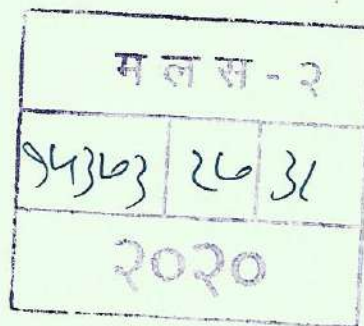 म ल स - २
१५३७३ २७ ३८
२०२०